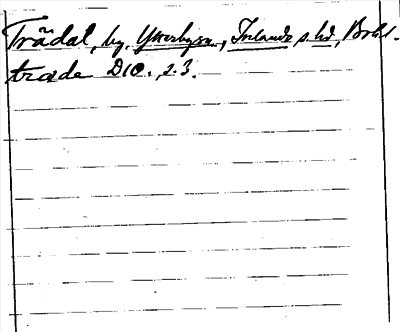 Trädal, by, Ytterbyn, Inlands s. hd, Bohl.
trade D10. s. 3.